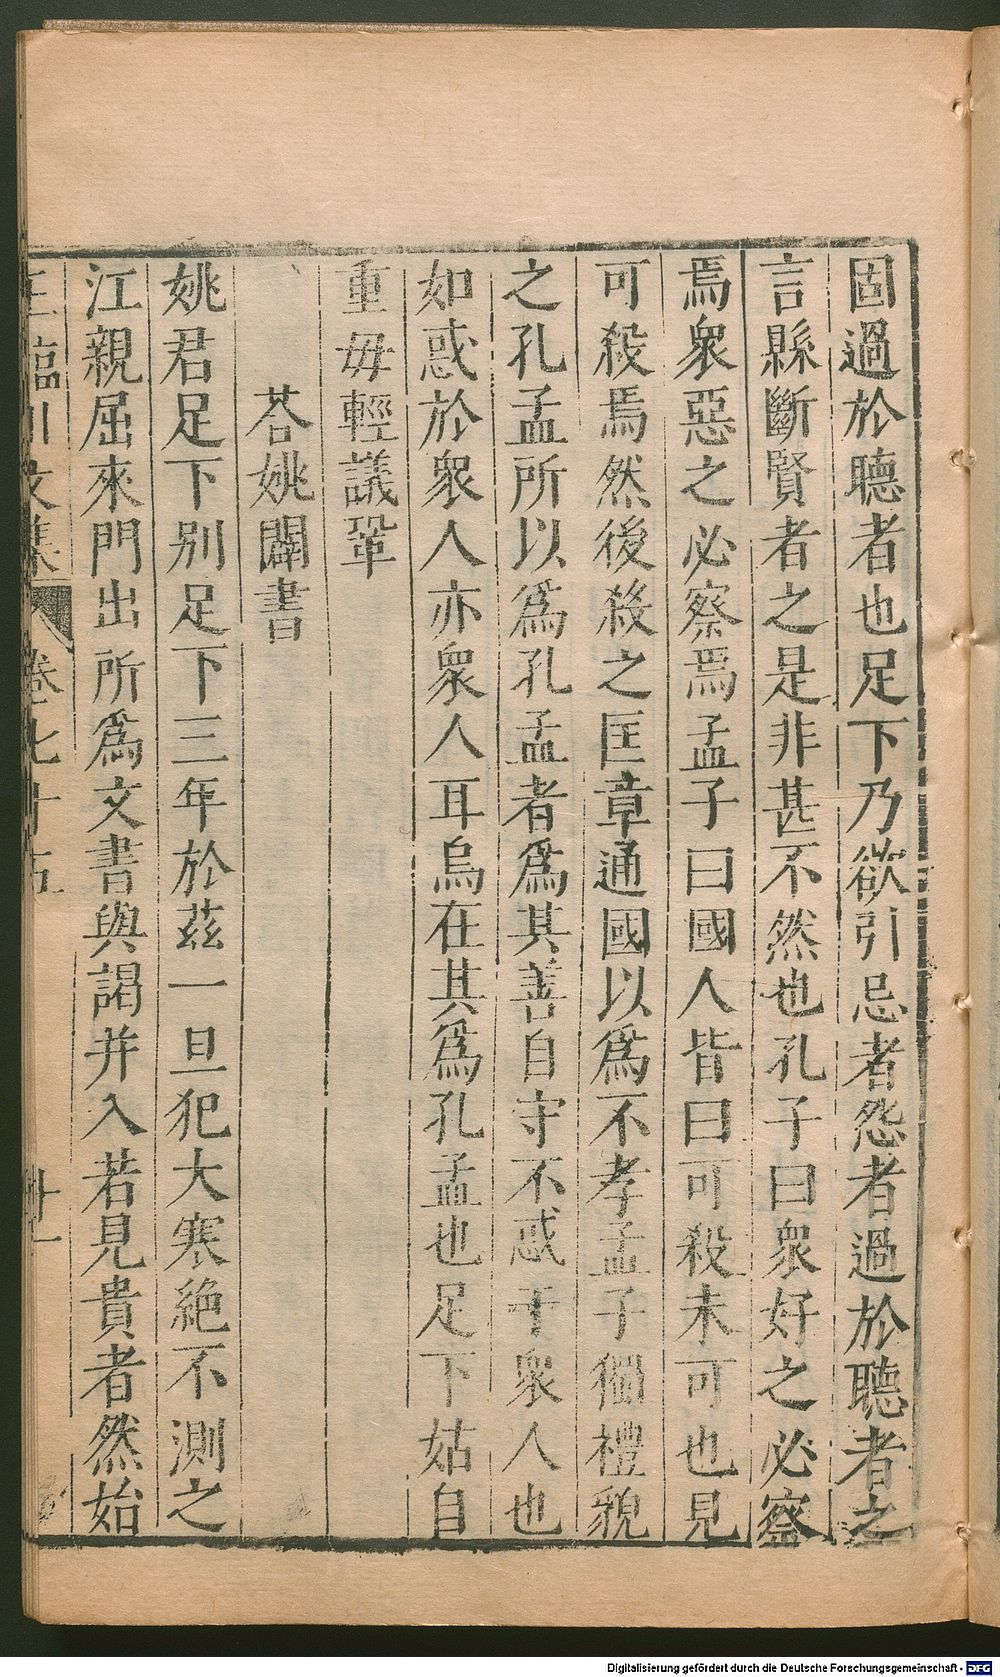 固過於聽者也足下乃欲引忌者怨者過於聽者之
言縣斷賢者之是非甚不然也孔子曰衆好之必察
焉衆惡之必察焉孟子曰國人皆曰可殺未可也見
可殺焉然後殺之匡章通國以爲不孝孟子獨禮貌
之孔孟所以爲孔孟者爲其善自守不惑于衆人也
如惑於衆人亦衆人耳烏在其爲孔孟也足下姑自
重毋輕議鞏
荅姚闢書
姚君足下别足下三年於茲一旦犯大寒絶不測之
江親屈來門出所爲文書與謁并入若見貴者然始
王臨川文集 卷七十五 廿一
Digitalisierung gefördert durch die Deutsche Forschungsgemeinschaft - DFG